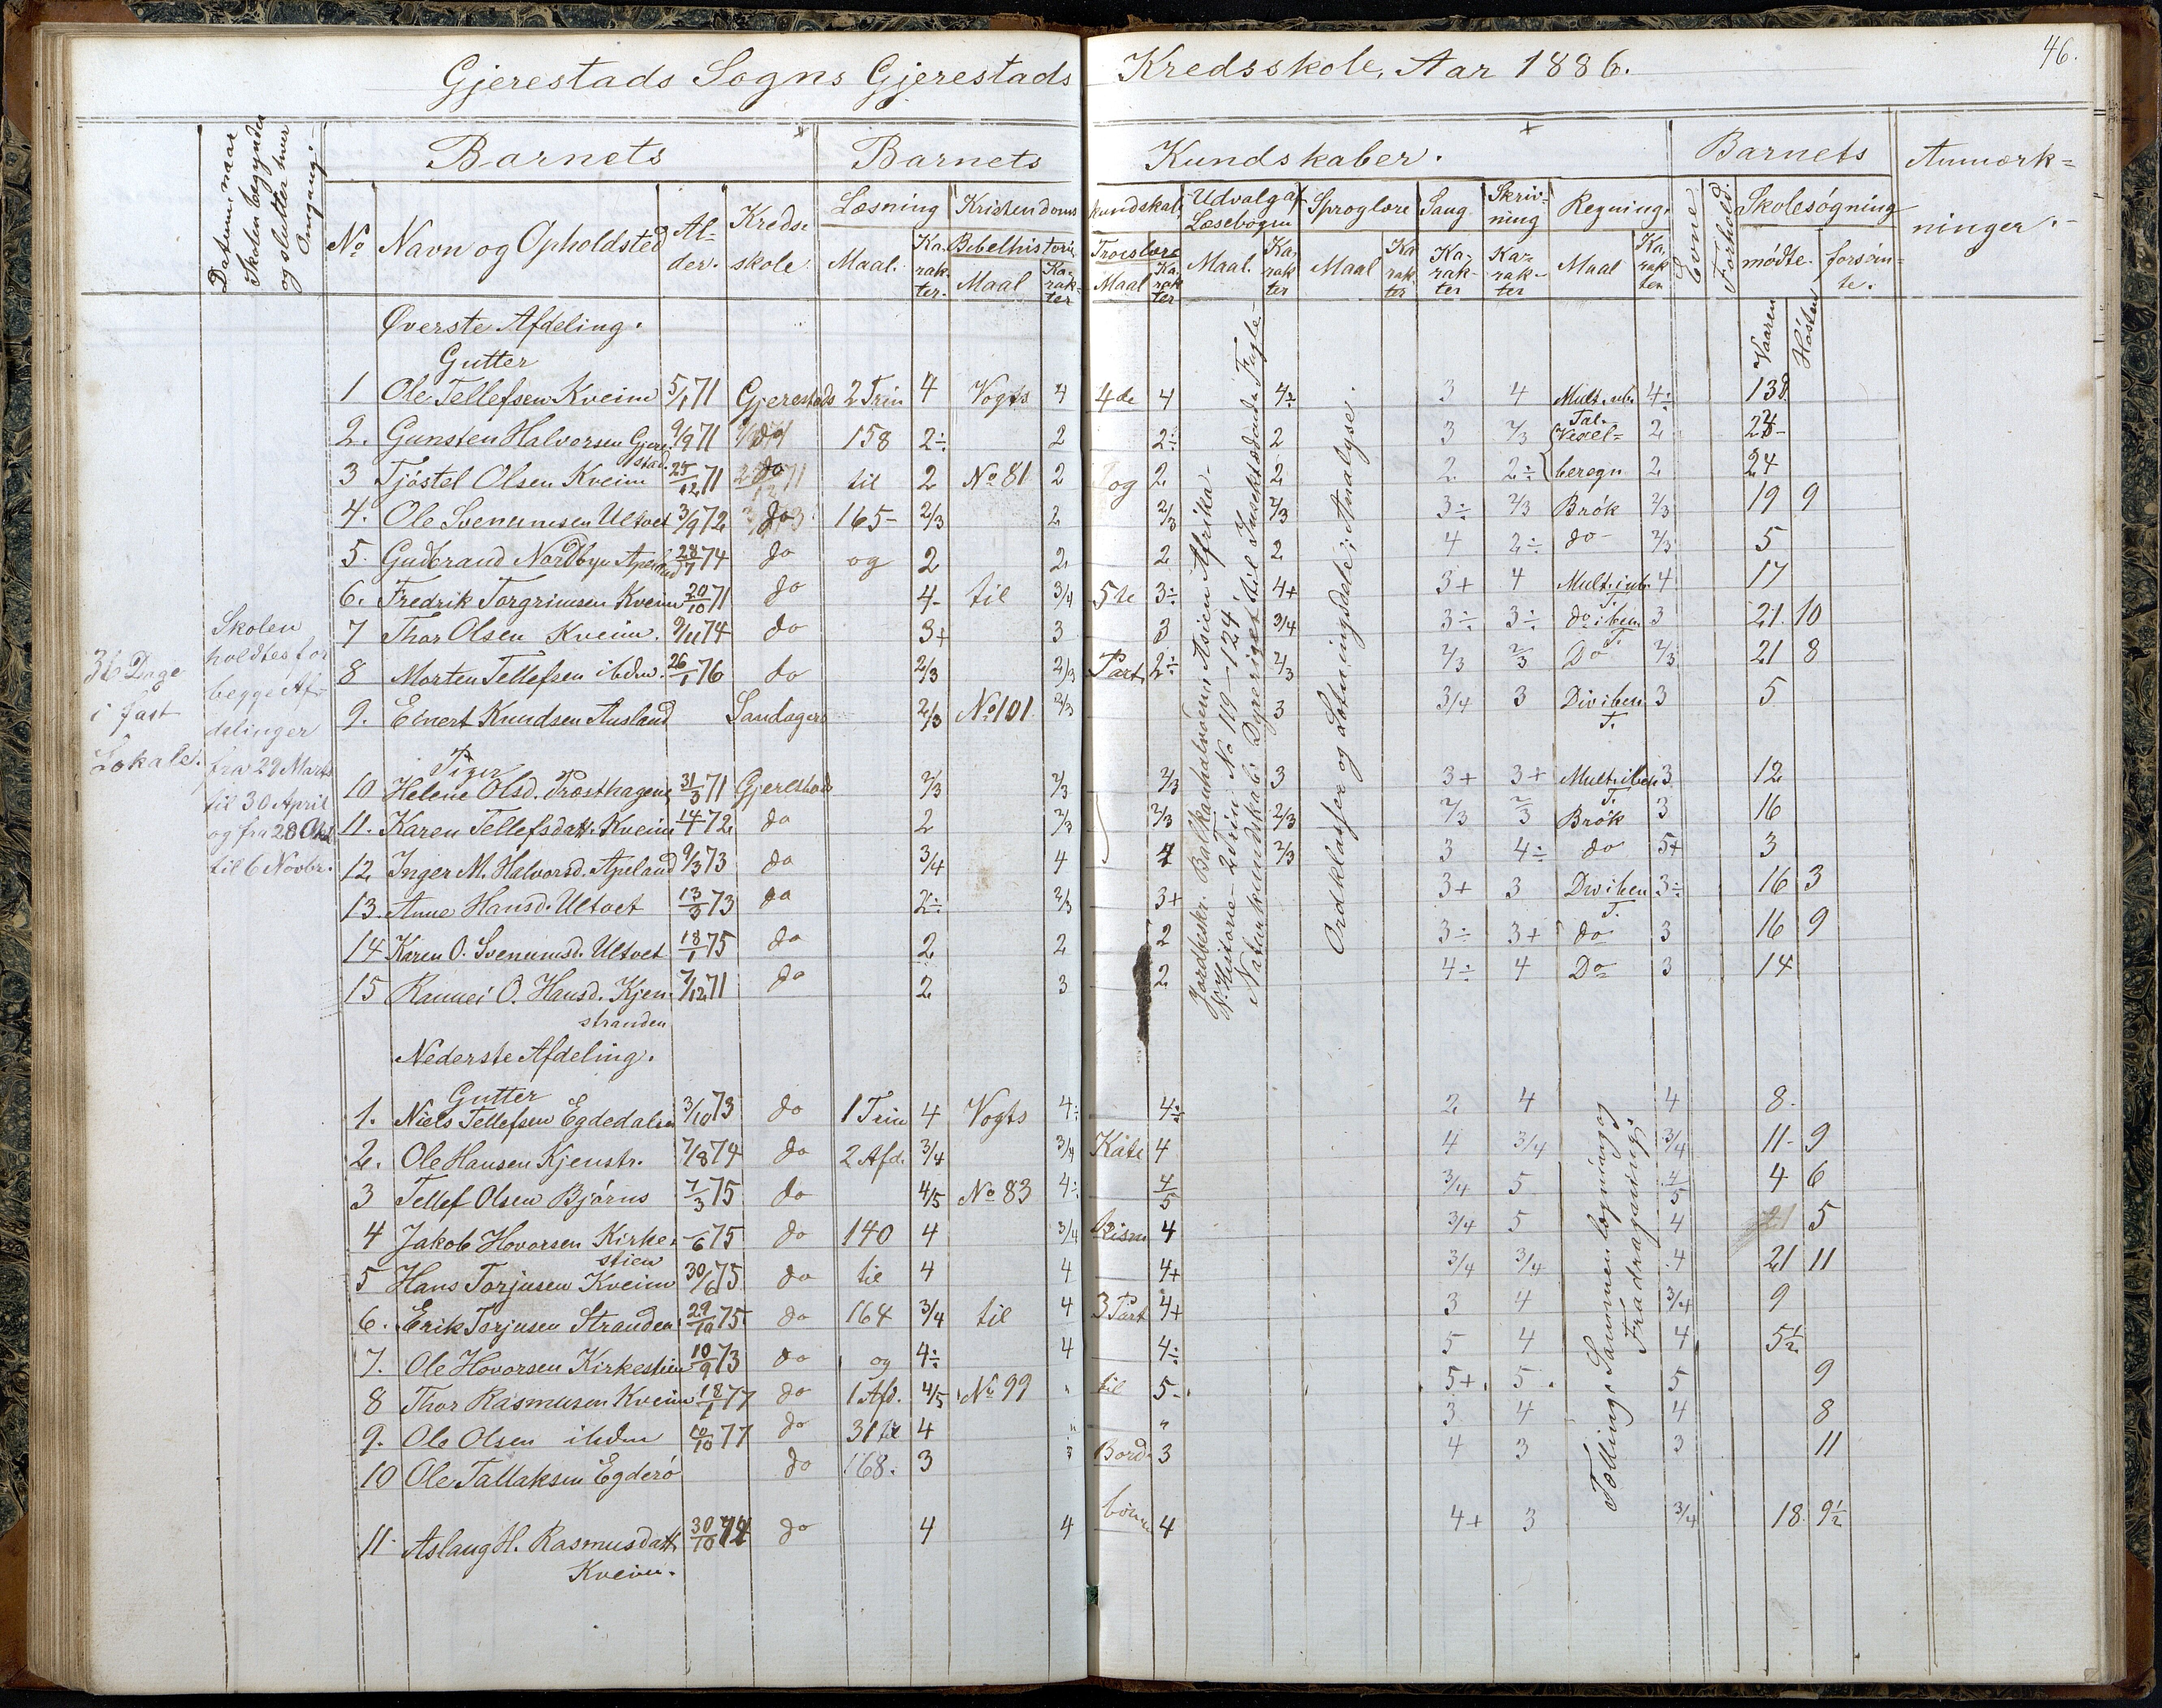 Gjerestads Sogns Gjerestads Kredsskole, Aar 1886.
46.
Datum, naar
Skolen begynder
og slutter hver
Omgang.
Barnets
Barnets
Kundskaber.
Barnets
Anmærk=
ninger.
No
Navn og Opholdsted
Al-
der.
Kreds-
skole
Læsning
Maal.
Ka-
rak-
ter.
Kristendoms
Bibelhistorie
Maal
Ka-
rak-
ter
kundskab,
Troeslære
Maal
Ka-
rak
ter
Udvalg af
Læsebogen
Maal.
Ka-
rak
ter
Sproglære
Maal
Ka
rak
ter
Sang
Ka-
rak-
ter
Skriv-
ning
Ka-
rak-
ter
Regning.
Maal
Ka-
rak
ter
Evne
Forhold.
Skolesøgning
mødte.
forsöm=
te.
Vaaren
Hösten
36 Dage
i fast
Lokale.
Skolen
holdtes for
begge Af-
delinger
fra 29 Marts
til 30 April
og fra 28 Okt
til 6 Novbr.
Øverste Afdeling.
Gutter
1 Ole Tellefsen Kveim 5/1 71 Gjerestads 2 Trin 4 Vogts 4 4de 4 4÷ 3 4 Mult. 4÷ 138
2. Gunsten Halvorsen Gjere-stad. 9/9 71 do 158 2÷ 2 2÷ 2 3 2/3 Tal. Vexel= 2 24-
3 Tjöstel Olsen Kveim 25/12 71 do til 2 No 81 2 og 2 2 2 2÷ beregn 2 24
4. Ole Svenumsen Ultvet 3/9 72 do 165- 2/3 2 2/3 2/3 3÷ 2/3 Brök 2/3 19 9
5. Gudbrand Nordbye Apeland 28/7 74 do og 2 2 2 2 4 2÷ do- 2/3 5
6. Fredrik Torgrimsen Kveim 20/10 71 do 4- til 3/4 5te 3÷ 4+ 3+ 4 Mult. 4 17
7 Thor Olsen Kveim. 9/11 74 do 3+ 3 3 3/4 3÷ 3÷ do 3 21. 10
8 Morten Tellefsen ibdm. 26/1 76 do 2/3 2/3 Part. 2÷ 2/3 2/3 2/3 Do 2/3 21 8
9. Einert Knudsen Ausland Sandager 2/3 No 101 2/3 3 3/4 3 T. 3 5
Piger
10 Helene Olsd. Præsthagen 31/3 71 Gjerestads 2/3 2/3 2/3 3 3+ 3+ T. 3 12
11. Karen Tellefsdatt. Kveim 14/7 72 do 2 2/3 2/3 2/3 2/3 2/3 Brök 3 16
12 Inger M. Halvorsd. Apeland 9/3 73 do 3/4 4 4 2/3 3 4÷ do 5+ 3
13. Anne Hansd. Ultvet 13/3 73 do 2÷ 2/3 3+ 3+ 3 T. 3÷ 16 3
14 Karen O. Svenumsd. Ultvet 18/1 75 do 2 2 2 3÷ 3+ do 3 16 9
15 Rannei O. Hansd. Kjen-stranden 7/12 71 do 2 3 2 4÷ 4 Do 3 14
Jordbeskr. Balkanhalvöen, Asien Afrika-
V. Historie- 2 Trin No 119-124
Naturkundskab: Dyreriget til Insektædende Fugle-
Ordklasser og Sætningsdele; Analyse.
Nederste Afdeling.
Gutter
1. Niels Tellefsen Egdedalen 3/10 73 do 1 Trin 4 Vogts 4÷ 4÷ 2 4 4 8-
2. Ole Hansen Kjenstr. 7/8 74 do 2 Afd. 3/4 3/4 Kate 4 4 3/4 3/4 11- 9
3 Tellef Olsen Björns 7/3 75 do 4/5 No 83 4÷ 4/5 3/4 5 4/5 4 6
4 Jakob Hovorsen Kirke-stien -/6 75 do 140 4 3/4 kism 4 3/4 5 4 21 5
5 Hans Torjusen Kveim 30/6 75 do til 4 4 4+ 3/4 3/4 4 21 11
6. Erik Torjusen Stranden 29/10 75 do 164 3/4 til 4 3 Part 4+ 3 4 3/4 9
7. Ole Hovorsen Kirkestien 10/9 73 do og 4÷ 4 4÷ 5 4 4 5½
8 Thor Rasmusen Kveim 18/1 77 do 1 Afd. 4/5 No 99 " til 5- 5+ 5 5 9
9. Ole Olsen ibdm 10/10 77 do 31 til 4 " " 3 4 4 8
10 Ole Tallaksen Egderö do 168. 3 3 Bord- 3 4 3 3 11
11- Aslaug H. Rasmusdatt. Kveim. 30/10 74 do 4 4 bönn 4 4+ 3 3/4 18 9½
Tælling, Sammenlægning og
Fradragning;